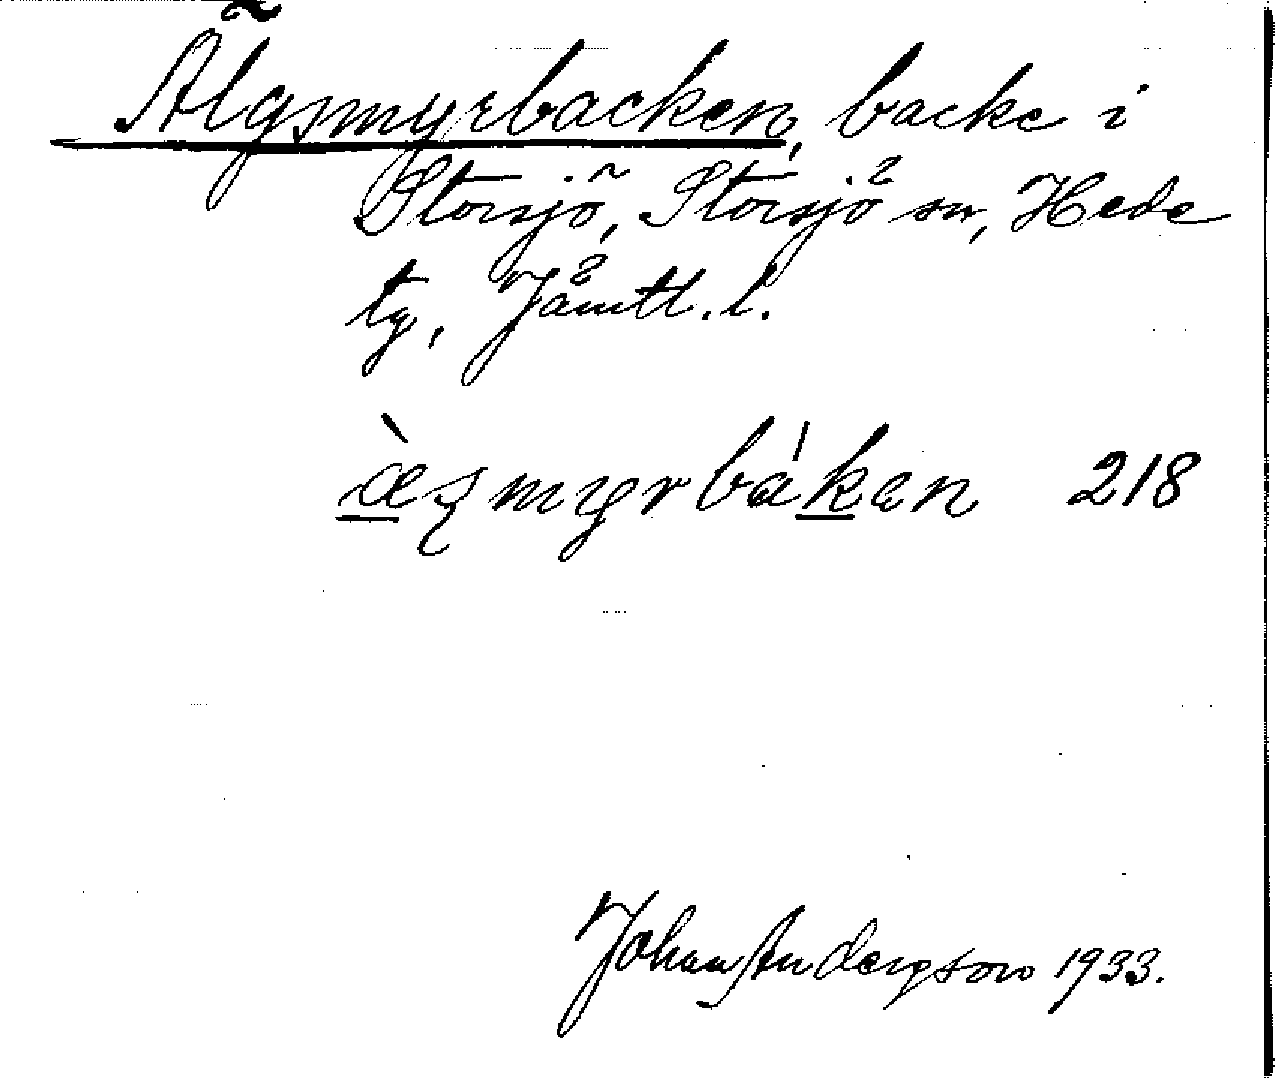 Älgsmyrbacken, backe i
Storsjö, Storsjö sn, Hede
tg, Jämtl. l.
æ̀ʂmyrbákan 218
Johan Andersson 1933.